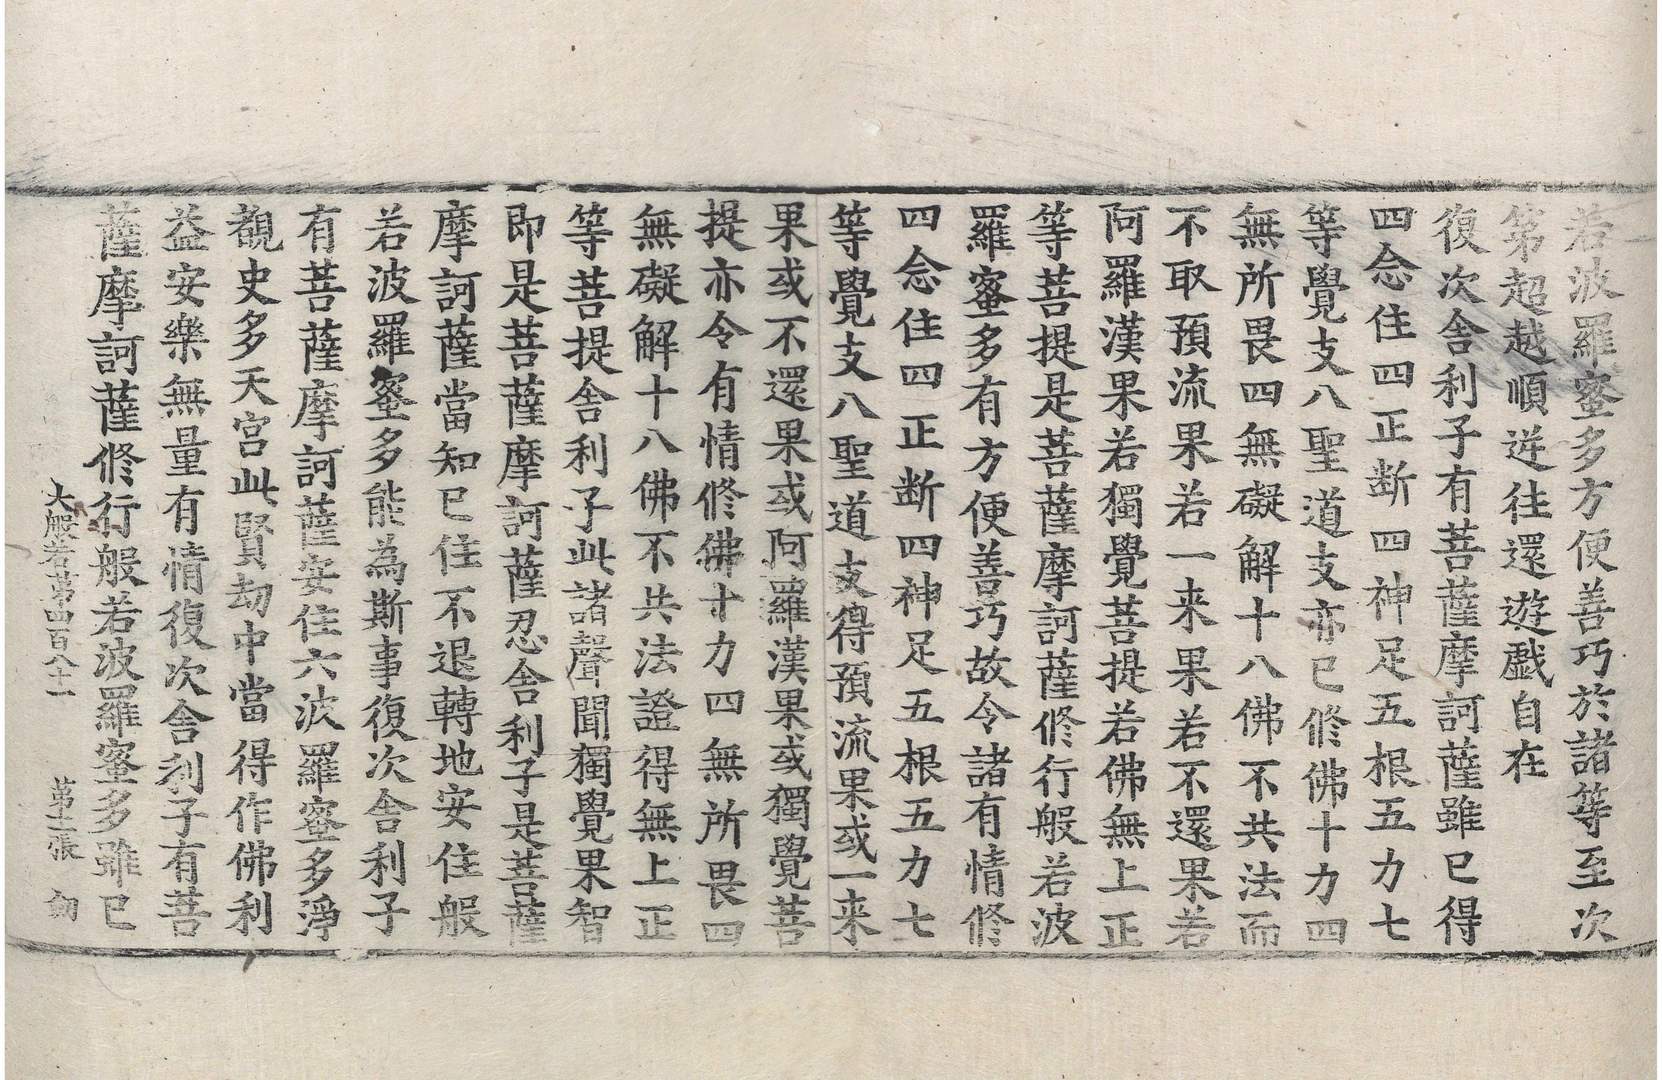 若波羅蜜多方便善巧於諸等至次
第超越順逆往還遊戲自在
復次舍利子有菩薩摩訶薩雖已得
四念住四正断四神足五根五力七
等覺支八聖道支亦已修佛十力四
無所畏四無礙解十八佛不共法而
不取預流果若一来果若不還果若
阿羅漢果若獨覺菩提若佛無上正
等菩提是菩薩摩訶薩修行般若波
羅蜜多有方便善巧故令諸有情修
四念住四正断四神足五根五力七
等覺支八聖道支得預流果或一来
果或不還果或阿羅漢果或獨覺菩
提亦令有情修佛十力四無所畏四
無礙解十八佛不共法證得無上正
等菩提舍利子此諸聲聞獨覺果智
即是菩薩摩訶薩忍舍利子是菩薩
摩訶薩當知已住不退轉地安住般
若波羅蜜多能為斯事復次舍利子
有菩薩摩訶薩安住六波羅蜜多淨
覩史多天宮此賢劫中當得作佛利
益安樂無量有情復次舍利子有菩
薩摩訶薩修行般若波羅蜜多雖已
大般若第四百八十一 第十二張